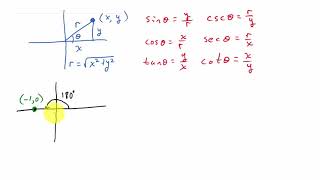 (x, y)
r
y
θ
x
r = √x²+y²
sinθ = y/r cscθ = r/y
cosθ = x/r secθ = r/x
tanθ = y/x cotθ = x/y
(-1,0)
180°